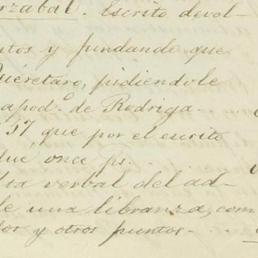 rzabal. Escrito devol-
ntos y fundando que
Querétaro, pidiendole
apod.º de Rodriga-
37 que por el escrito
que once ps.
ta verbal del ad-
de una libranza, com
dos y otros puntos